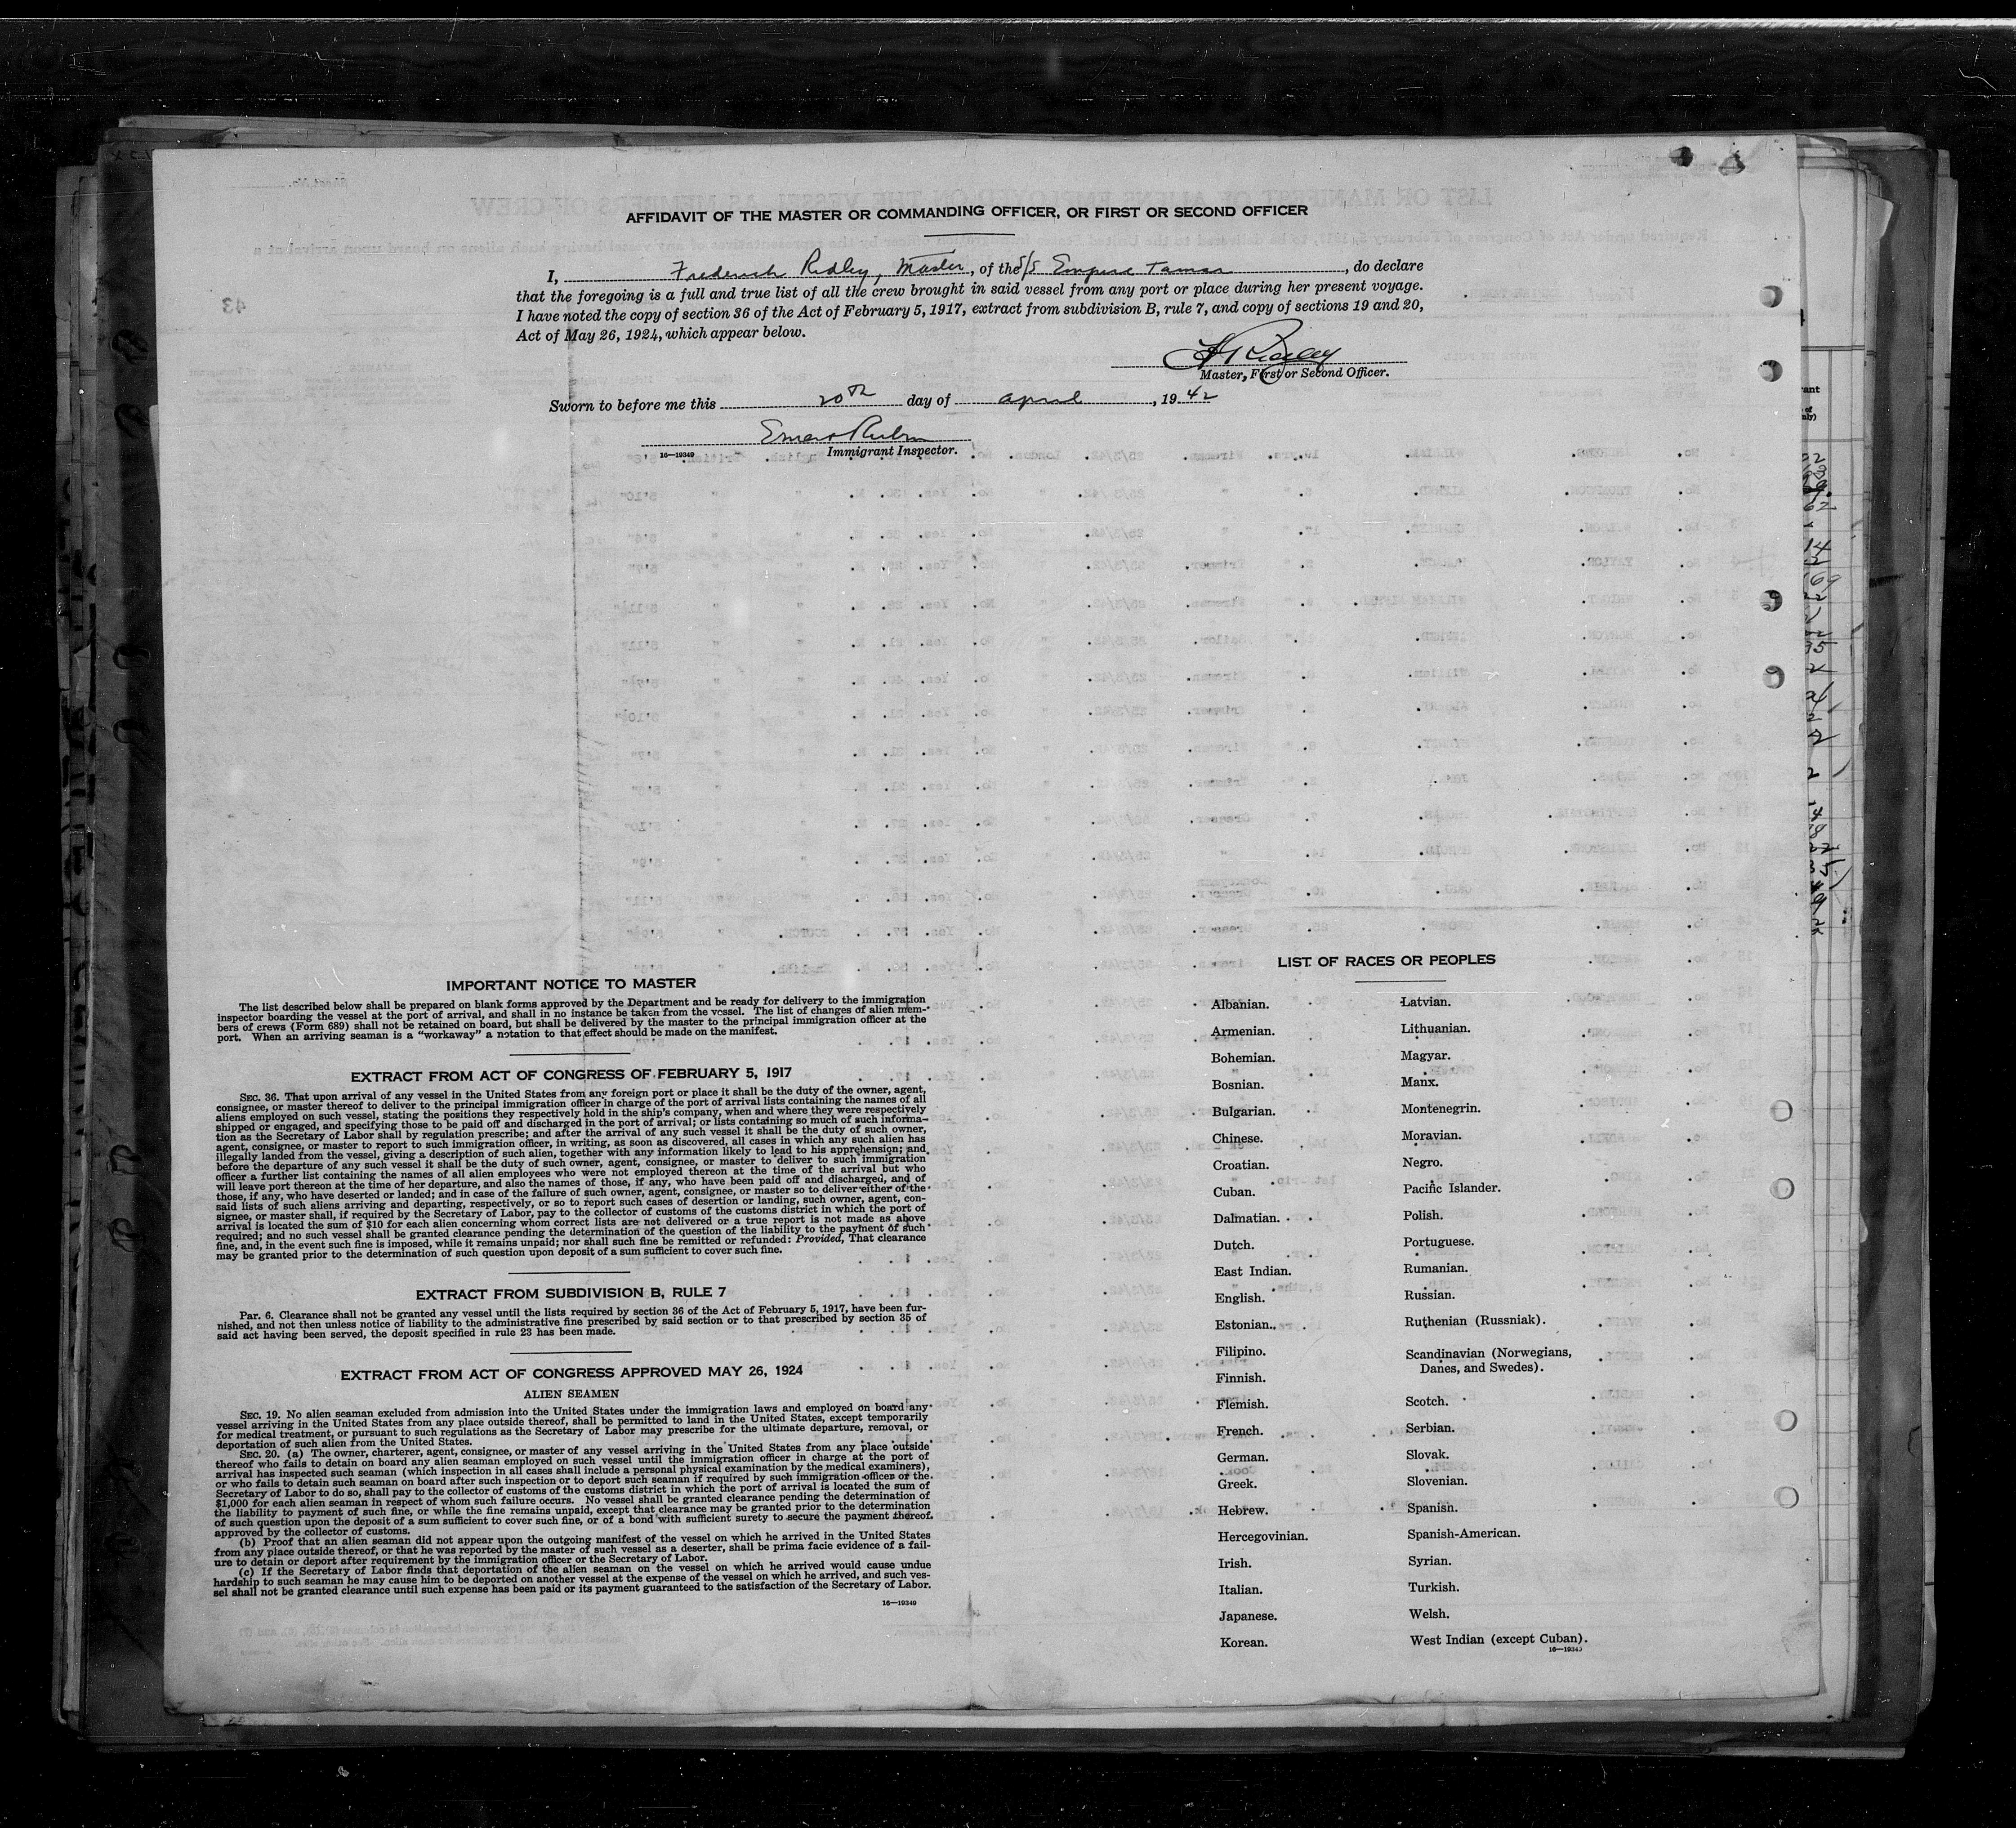 AFFIDAVIT OF THE MASTER OR COMMANDING OFFICER, OR FIRST OR SECOND OFFICER
I, Frederick Ridley, Master, of the S/S Empire Tamar, do declare
that the foregoing is a full and true list of all the crew brought in said vessel from any port or place during her present voyage.
I have noted the copy of section 36 of the Act of February 5, 1917, extract from subdivision B, rule 7, and copy of sections 19 and 20,
Act of May 26, 1924, which appear below.
Master, First or Second Officer.
Sworn to before me this 20th day of April, 1942
16—19349 Immigrant Inspector.
IMPORTANT NOTICE TO MASTER
The list described below shall be prepared on blank forms approved by the Department and be ready for delivery to the immigration
inspector boarding the vessel at the port of arrival, and shall in no instance be taken from the vessel. The list of changes of alien mem-
bers of crews (Form 689) shall not be retained on board, but shall be delivered by the master to the principal immigration officer at the
port. When an arriving seaman is a "workaway" a notation to that effect should be made on the manifest.
EXTRACT FROM ACT OF CONGRESS OF FEBRUARY 5, 1917
SEC. 36. That upon arrival of any vessel in the United States from any foreign port or place it shall be the duty of the owner, agent,
consignee, or master thereof to deliver to the principal immigration officer in charge of the port of arrival lists containing the names of all
aliens employed on such vessel, stating the positions they respectively hold in the ship's company, when and where they were respectively
shipped or engaged, and specifying those to be paid off and discharged in the port of arrival; or lists containing so much of such informa-
tion as the Secretary of Labor shall by regulation prescribe; and after the arrival of any such vessel it shall be the duty of such owner,
agent, consignee, or master to report to such immigration officer, in writing, as soon as discovered, all cases in which any such alien has
illegally landed from the vessel, giving a description of such alien, together with any information likely to lead to his apprehension; and
before the departure of any such vessel it shall be the duty of such owner, agent, consignee, or master to deliver to such immigration
officer a further list containing the names of all alien employees who were not employed thereon at the time of the arrival but who
will leave port thereon at the time of her departure, and also the names of those, if any, who have been paid off and discharged, and of
those, if any, who have deserted or landed; and in case of the failure of such owner, agent, consignee, or master so to deliver either of the
said lists of such aliens arriving and departing, respectively, or so to report such cases of desertion or landing, such owner, agent, con-
signee, or master shall, if required by the Secretary of Labor, pay to the collector of customs of the customs district in which the port of
arrival is located the sum of $10 for each alien concerning whom correct lists are not delivered or a true report is not made as above
required; and no such vessel shall be granted clearance pending the determination of the question of the liability to the payment of such
fine, and, in the event such fine is imposed, while it remains unpaid; nor shall such fine be remitted or refunded: Provided, That clearance
may be granted prior to the determination of such question upon deposit of a sum sufficient to cover such fine.
EXTRACT FROM SUBDIVISION B, RULE 7
Par. 6. Clearance shall not be granted any vessel until the lists required by section 36 of the Act of February 5, 1917, have been fur-
nished, and not then unless notice of liability to the administrative fine prescribed by said section or to that prescribed by section 35 of
said act having been served, the deposit specified in rule 23 has been made.
EXTRACT FROM ACT OF CONGRESS APPROVED MAY 26, 1924
ALIEN SEAMEN
SEC. 19. No alien seaman excluded from admission into the United States under the immigration laws and employed on board any
vessel arriving in the United States from any place outside thereof, shall be permitted to land in the United States, except temporarily
for medical treatment, or pursuant to such regulations as the Secretary of Labor may prescribe for the ultimate departure, removal, or
deportation of such alien from the United States.
SEC. 20. (a) The owner, charterer, agent, consignee, or master of any vessel arriving in the United States from any place outside
thereof who fails to detain on board any alien seaman employed on such vessel until the immigration officer in charge at the port of
arrival has inspected such seaman (which inspection in all cases shall include a personal physical examination by the medical examiners),
or who fails to detain such seaman on board after such inspection or to deport such seaman if required by such immigration officer or the
Secretary of Labor to do so, shall pay to the collector of customs of the customs district in which the port of arrival is located the sum of
$1,000 for each alien seaman in respect of whom such failure occurs. No vessel shall be granted clearance pending the determination of
the liability to the payment of such fine, or while the fine remains unpaid, except that clearance may be granted prior to the determination
of such question upon the deposit of a sum sufficient to cover such fine, or of a bond with sufficient surety to secure the payment thereof,
approved by the collector of customs.
(b) Proof that an alien seaman did not appear upon the outgoing manifest of the vessel on which he arrived in the United States
from any place outside thereof, or that he was reported by the master of such vessel as a deserter, shall be prima facie evidence of a fail-
ure to detain or deport after requirement by the immigration officer or the Secretary of Labor.
(c) If the Secretary of Labor finds that deportation of the alien seaman on the vessel on which he arrived would cause undue
hardship to such seaman he may cause him to be deported on another vessel at the expense of the vessel on which he arrived, and such ves-
sel shall not be granted clearance until such expense has been paid or its payment guaranteed to the satisfaction of the Secretary of Labor.
16—19349
LIST OF RACES OR PEOPLES
Albanian.
Armenian.
Bohemian.
Bosnian.
Bulgarian.
Chinese.
Croatian.
Cuban.
Dalmatian.
Dutch.
East Indian.
English.
Estonian.
Filipino.
Finnish.
Flemish.
French.
German.
Greek.
Hebrew.
Hercegovinian.
Irish.
Italian.
Japanese.
Korean.
Latvian.
Lithuanian.
Magyar.
Manx.
Montenegrin.
Moravian.
Negro.
Pacific Islander.
Polish.
Portuguese.
Rumanian.
Russian.
Ruthenian (Russniak).
Scandinavian (Norwegians,
Danes, and Swedes).
Scotch.
Serbian.
Slovak.
Slovenian.
Spanish.
Spanish-American.
Syrian.
Turkish.
Welsh.
West Indian (except Cuban).
16—19349